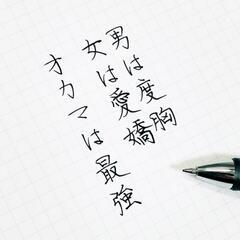 男は度胸
女は愛嬌
オカマは最強